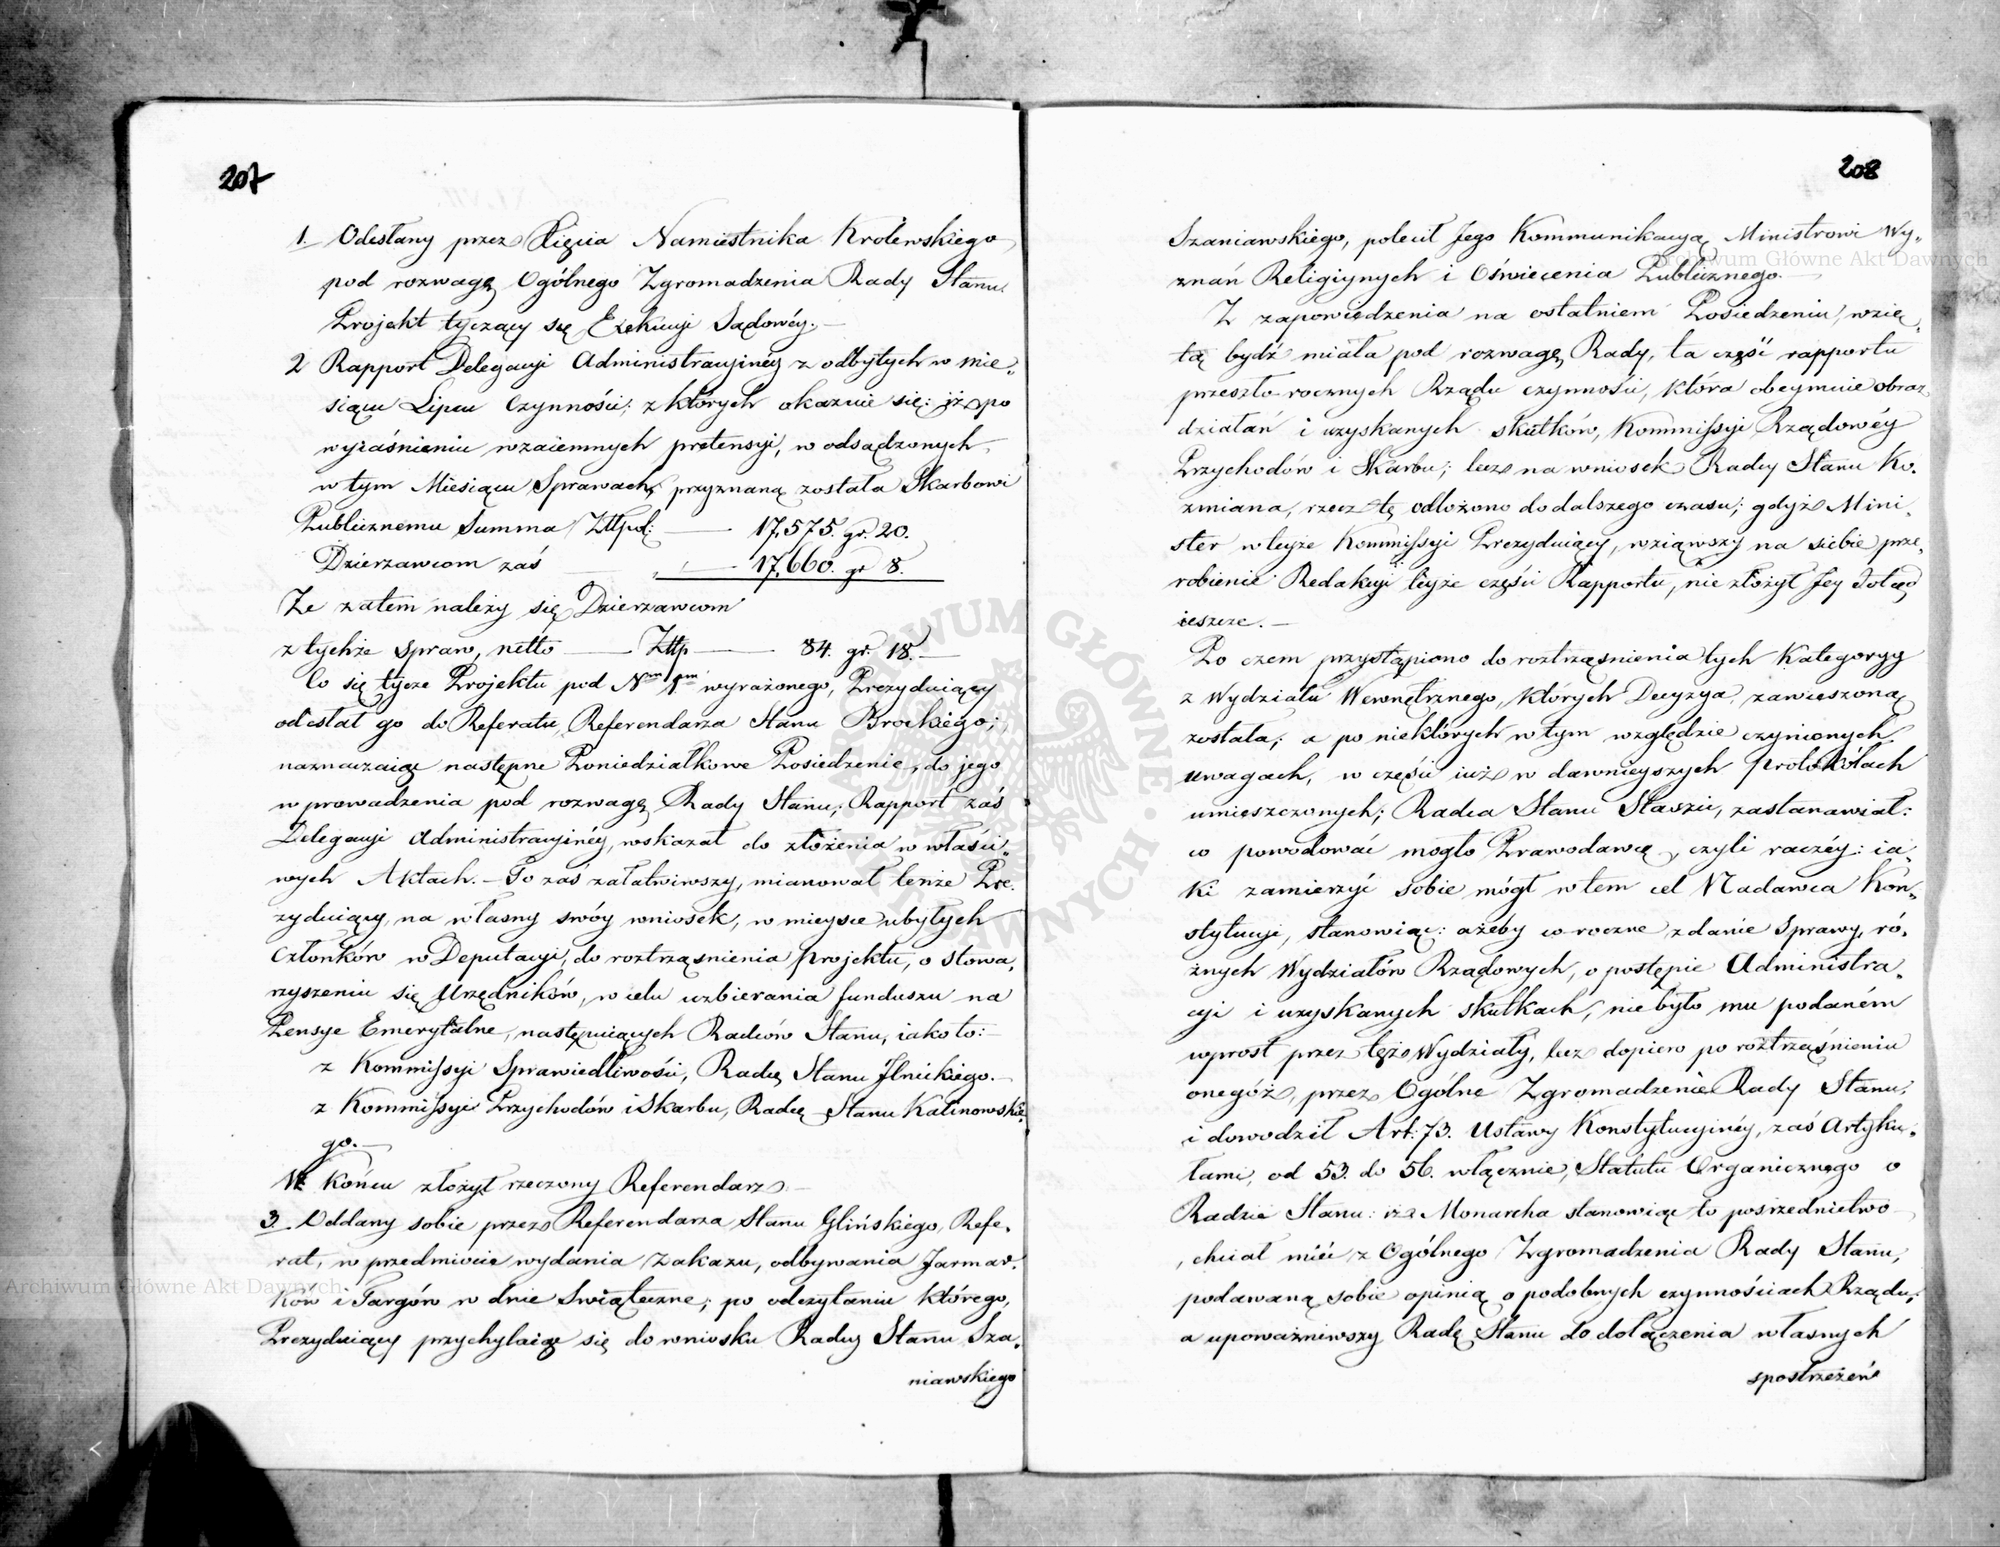 207
1. Odesłany przez Xięcia Namiestnika Królewskiego
pod rozwagę Ogólnego Zgromadzenia Rady Stanu
Projekt tyczący się Exekucyi Sądowéy.—
2 Rapport Delegacyi Administracyinéy z odbytych w mie„
siącu Lipcu Czynności; z których okazuie się: iż po
wyiaśnieniu wzaiemnych pretensyi, w odsądzonych
w tym Miesiącu Sprawach, przyznaną została Skarbowi
Publicznemu Summa Złłpol: — 17,575. gr. 20.
Dzierzawcom zaś — „ — 17,660. gr 8.
Ze zatem należy się Dzierzawcom
z tychże spraw, netto — Złłp — 84. gr. 18.—
Co się tycze Projektu pod Nrm 1ym wyrażonego, Prezyduiący
odesłał go do Referatu, Referendarza Stanu Brockiego;
naznaczaiąc następne Poniedziałkowe Posiedzenie, do jego
wprowadzenia pod rozwagę Rady Stanu; Rapport zaś
Delegacyi Administracyinéy, wskazał do złożenia w właści„
wych Aktach.— To zaś załatwiwszy, mianował tenże Pre.
zyduiący, na własny swóy wniosek, w mieysce ubyłych
Członków w Deputacyi, do roztrząsnienia Projektu, o stowa„
rzyszeniu się Urzędników, w celu uzbierania funduszu na
Pensye Emerytalne, następuiących Radców Stanu, iako to:—
z Kommissyi Sprawiedliwości, Radcę Stanu Ilnickiego.—
z Kommissyi Przychodów i Skarbu, Radcę Stanu Kalinowskie
go.—
W końcu złożył rzeczony Referendarz—
3. Oddany sobie przez Referendarza Stanu Glińskiego, Refe„
rat, w przedmiocie wydania Zakazu, odbywania Jarmar„
ków i Targów w dnie Świąteczne; po odczytaniu którego,
Prezyduiący przychylaiąc się do wniosku Radcy Stanu Sza„
niawskiego
208
Szaniawskiego, polecił Jego Kommunikacyą Ministrowi Wy„
znań Religiynych i Oświecenia Publicznego.—
Z zapowiedzenia na ostatniem Posiedzeniu, wzię„
tą bydź miała pod rozwagę Rady, ta część rapportu
przeszło-rocznych Rządu czynności, która obeymuie obraz
działań i uzyskanych skutków, Kommissyi Rządowéy
Przychodów i Skarbu; lecz na wniosek Radcy Stanu Ko„
zmiana, rzecz tę odłożono do dalszego czasu; gdyż Mini„
ster w teyże Kommissyi Prezyduiący, wziąwszy na siebie prze„
robienie Redakcyi teyże części Rapportu, nie złożył Jey dotąd
ieszcze.—
Po czem przystąpiono do roztrząsnienia tych Kategoryy
z Wydziału Wewnętrznego, których Decyzya, zawieszoną
została; a po niektórych w tym względzie czynionych
uwagach, w części iuż w dawnieyszych Protokółach
umieszczonych; Radca Stanu Staszic, zastanawiał:
co powodować mogło Prawodawcę, czyli raczéy: ia„
ki zamierzyć sobie mógł w tem cel Nadawca Kon„
stytucyi, stanowiąc: ażeby co-roczne zdanie Sprawy, ró„
żnych Wydziałów Rządowych, o postępie Administra„
cyi i uzyskanych skutkach, nie było mu podaném
wprost przez też Wydziały, lecz dopiero po roztrząśnieniu
onegóż, przez Ogólne Zgromadzenie Rady Stanu;
i dowodził Art: 73. Ustawy Konstytucyinéy, zaś Artyku„
łami, od 53. do 56. włącznie, Statutu Organicznego o
Radzie Stanu: iż Monarcha stanowiąc to posrzednictwo
, chciał mieć z Ogólnego Zgromadzenia Rady Stanu,
podawaną sobie opinią o podobnych czynnościach Rządu;
a upoważniwszy Radę Stanu do dołączenia własnych
spostrzeżeń
Archiwum Główne Akt Dawnych
Archiwum Główne Akt Dawnych
ARCHIWUM GŁÓWNE AKT DAWNYCH